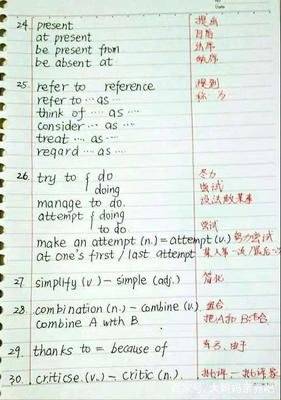 24. present 提出
at present 目前
be present from
be absent at 缺席
25. refer to reference 提到
refer to ... as ... 称为
think of ... as ...
consider ... as ...
treat ... as ...
regard ... as ...
26. try to { do 尽力
doing 尝试
manage to do. 设法做某事
attempt { doing
to do 尝试
make an attempt (n.) = attempt (v.) 努力尝试
at one's first / last attempt 某人第一次/最后一次
27 simplify (v.) — simple (adj.) 简化
28. combination (n.) — combine (v.) 组合
combine A with B. 把A和B混合
29. thanks to = because of 由于
30. criticse (v.) — critic (n.) 批评